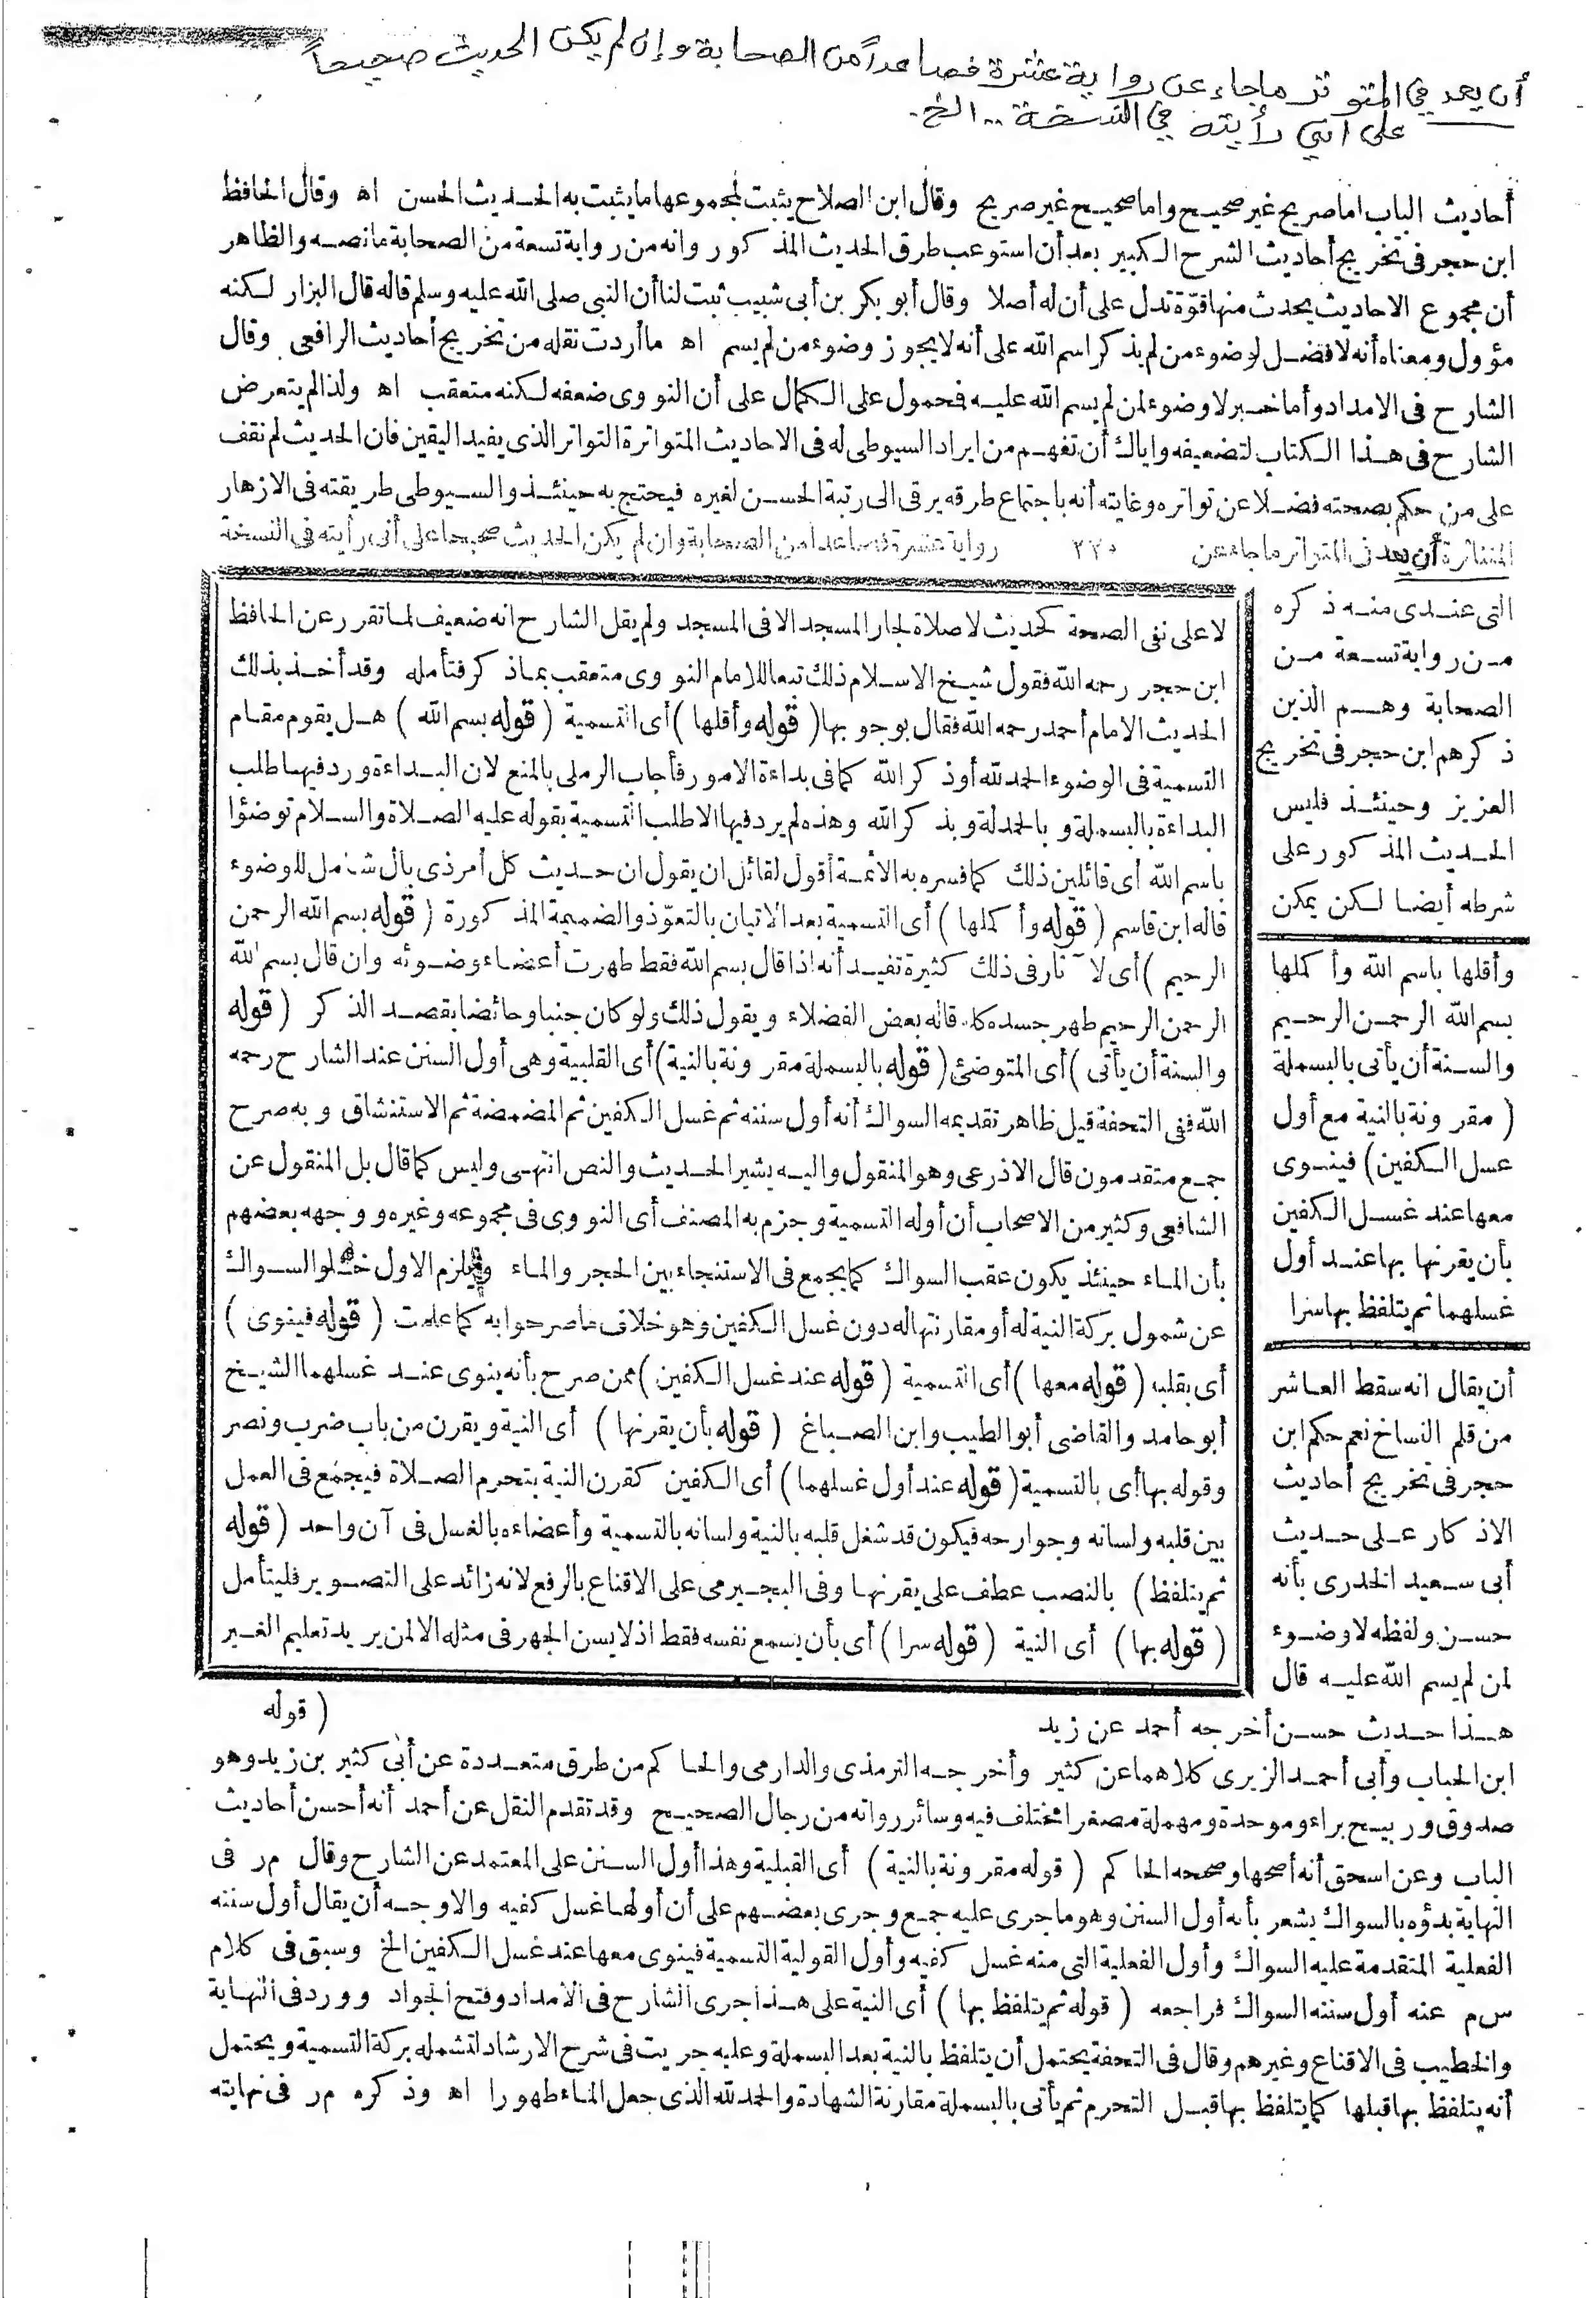 أن يعد في المتواتر ما جاء عن رواية عشرة فصاعداً من الصحابة وإن لم يكن الحديث صحيحاً
على انني رأيته في النسخة .. الخ.
أحاديث الباب اما صريح غير صحيح واما صحيح غير صريح وقال ابن الصلاح يثبت لمجموعها ما يثبت به الحديث الحسن اه وقال الحافظ
ابن حجر في تخريج أحاديث الشرح الكبير بعد أن استوعب طرق الحديث المذكور وانه من رواية تسعة من الصحابة ما نصه والظاهر
أن مجموع الاحاديث يحدث منها قوّة تدل على أن له أصلا وقال أبو بكر بن أبي شيبب ثبت لنا أن النبي صلى الله عليه وسلم قاله قال البزار لكنه
مؤول ومعناه أنه لا فضل لوضوء من لم يذكر اسم الله على أنه لا يجوز وضوء من لم يسم اه ما أردت نقله من تخريج أحاديث الرافعي وقال
الشارح في الامداد وأما خبر لا وضوء لمن لم يسم الله عليه فحمول على الكمال على أن النووى ضعفه لكنه متعقب اه ولذا لم يتعرض
الشارح في هذا الكتاب لتضعيفه واياك أن تفهم من ايراد السيوطى له في الاحاديث المتواترة التواتر الذى يفيد اليقين فان الحديث لم نقف
على من حكم بصحته فضلا عن تواتره وغايته أنه باجتماع طرقه يرقى الى رتبة الحسن لغيره فيحتج به حينئذ والسيوطى طريقته في الازهار
المتناثرة أن يعد في المتواتر ما جاء عن ٢٢٠ رواية عشرة فصاعدا من الصحابة وان لم يكن الحديث صحيحا على أنى رأيته في النسخة
التى عندى منه ذكره
من رواية تسعة من
الصحابة وهم الذين
ذكرهم ابن حجر في تخريج
العزيز وحينئذ فليس
الحديث المذكور على
شرطه أيضا لكن يمكن
وأقلها باسم الله وأكملها
بسم الله الرحمن الرحيم
والسنة أن يأتى بالبسملة
( مقرونة بالنية مع أول
غسل الكفين) فينوى
معها عند غسل الكفين
بأن يقرنها بها عند أول
غسلهما ثم يتلفظ بها سرا
لا على نفى الصحة كحديث لا صلاة لجار المسجد الا في المسجد ولم يقل الشارح انه ضعيف لما تقرر عن الحافظ
ابن حجر رحمه الله فقول شيخ الاسلام ذلك تبعا للامام النووى متعقب بما ذكر فتأمله وقد أخذ بذلك
الحديث الامام أحمد رحمه الله فقال بوجوبها ( قوله وأقلها ) أى التسمية ( قوله بسم الله ) هل يقوم مقام
التسمية في الوضوء الحمد لله أو ذكر الله كما في بداءة الامور فأجاب الرملى بالمنع لان البداءة ورد فيها طلب
البداءة بالبسملة وبالحمدلة وبذكر الله وهذه لم يرد فيها الا طلب التسمية بقوله عليه الصلاة والسلام توضؤا
باسم الله أى قائلين ذلك كما فسره به الأئمة أقول لقائل ان يقول ان حديث كل أمر ذى بال شامل للوضوء
قاله ابن قاسم ( قوله وأكملها ) أى التسمية بعد الاتيان بالتعوّذ والضميمة المذكورة ( قوله بسم الله الرحمن
الرحيم ) أى لآثار في ذلك كثيرة تفيد أنه اذا قال بسم الله فقط طهرت أعضاء وضوئه وان قال بسم الله
الرحمن الرحيم طهر جسده كله قاله بعض الفضلاء ويقول ذلك ولو كان جنبا وحائضا بقصد الذكر ( قوله
والسنة أن يأتى ) أى المتوضئ ( قوله بالبسملة مقرونة بالنية) أى القلبية وهى أول السنن عند الشارح رحمه
الله ففى التحفة قيل ظاهر تقديمه السواك أنه أول سننه ثم غسل الكفين ثم المضمضة ثم الاستنشاق وبه صرح
جمع متقدمون قال الاذرعى وهو المنقول واليه يشير الحديث والنص انتهى وليس كما قال بل المنقول عن
الشافعى وكثير من الاصحاب أن أوله التسمية وجزم به المصنف أى النووى في مجموعه وغيره ووجهه بعضهم
بأن الماء حينئذ يكون عقب السواك كما يجمع في الاستنجاء بين الحجر والماء ويلزم الاول خلو السواك
عن شمول بركة النية له أو مقارنتها له دون غسل الكفين وهو خلاف ما صرحوا به كما علمت ( قوله فينوى )
أى بقلبه ( قوله معها ) أى التسمية ( قوله عند غسل الكفين ) ممن صرح بأنه ينوى عند غسلهما الشيخ
أبو حامد والقاضى أبو الطيب وابن الصباغ ( قوله بأن يقرنها ) أى النية ويقرن من باب ضرب ونصر
وقوله بها أى بالتسمية ( قوله عند أول غسلهما ) أى الكفين كقرن النية بتحرم الصلاة فيجمع في العمل
بين قلبه ولسانه وجوارحه فيكون قد شغل قلبه بالنية ولسانه بالتسمية وأعضاءه بالغسل في آن واحد ( قوله
ثم يتلفظ ) بالنصب عطف على يقرنها وفي البجيرمى على الاقناع بالرفع لانه زائد على التصوير فليتأمل
( قوله بها ) أى النية ( قوله سرا ) أى بأن يسمع نفسه فقط اذ لا يسن الجهر في مثله الا لمن يريد تعليم الغير
( قوله
أن يقال انه سقط العاشر
من قلم النساخ نعم حكم ابن
حجر في تخريج أحاديث
الاذكار على حديث
أبى سعيد الخدرى بأنه
حسن ولفظه لا وضوء
لمن لم يسم الله عليه قال
هذا حديث حسن أخرجه أحمد عن زيد
ابن الحباب وأبى أحمد الزبرى كلاهما عن كثير وأخرجه الترمذى والدارمى والحاكم من طرق متعددة عن أبى كثير بن زيد وهو
صدوق وربيح براء وموحدة ومهملة مصغرا مختلف فيه وسائر رواته من رجال الصحيح وقد تقدم النقل عن أحمد أنه أحسن أحاديث
الباب وعن اسحق أنه أصحها وصححه الحاكم ( قوله مقرونة بالنية ) أى القبلية وهذا أول السنن على المعتمد عن الشارح وقال م ر في
النهاية بدؤه بالسواك يشعر بأنه أول السنن وهو ما جرى عليه جمع وجرى بعضهم على أن أولها غسل كفيه والاوجه أن يقال أول سننه
الفعلية المتقدمة عليه السواك وأول الفعلية التى منه غسل كفيه وأول القولية التسمية فينوى معها عند غسل الكفين الخ وسبق في كلام
س م عنه أول سننه السواك فراجعه ( قوله ثم يتلفظ بها ) أى النية على هذا جرى الشارح في الامداد وفتح الجواد وورد في النهاية
والخطيب في الاقناع وغيرهم وقال في التحفة يحتمل أن يتلفظ بالنية بعد البسملة وعليه جريت في شرح الارشاد لتشمله بركة التسمية ويحتمل
أنه يتلفظ بها قبلها كما يتلفظ بها قبل التحرم ثم يأتى بالبسملة مقارنة الشهادة والحمد لله الذى جعل الماء طهورا اه وذكره م ر في نهايته